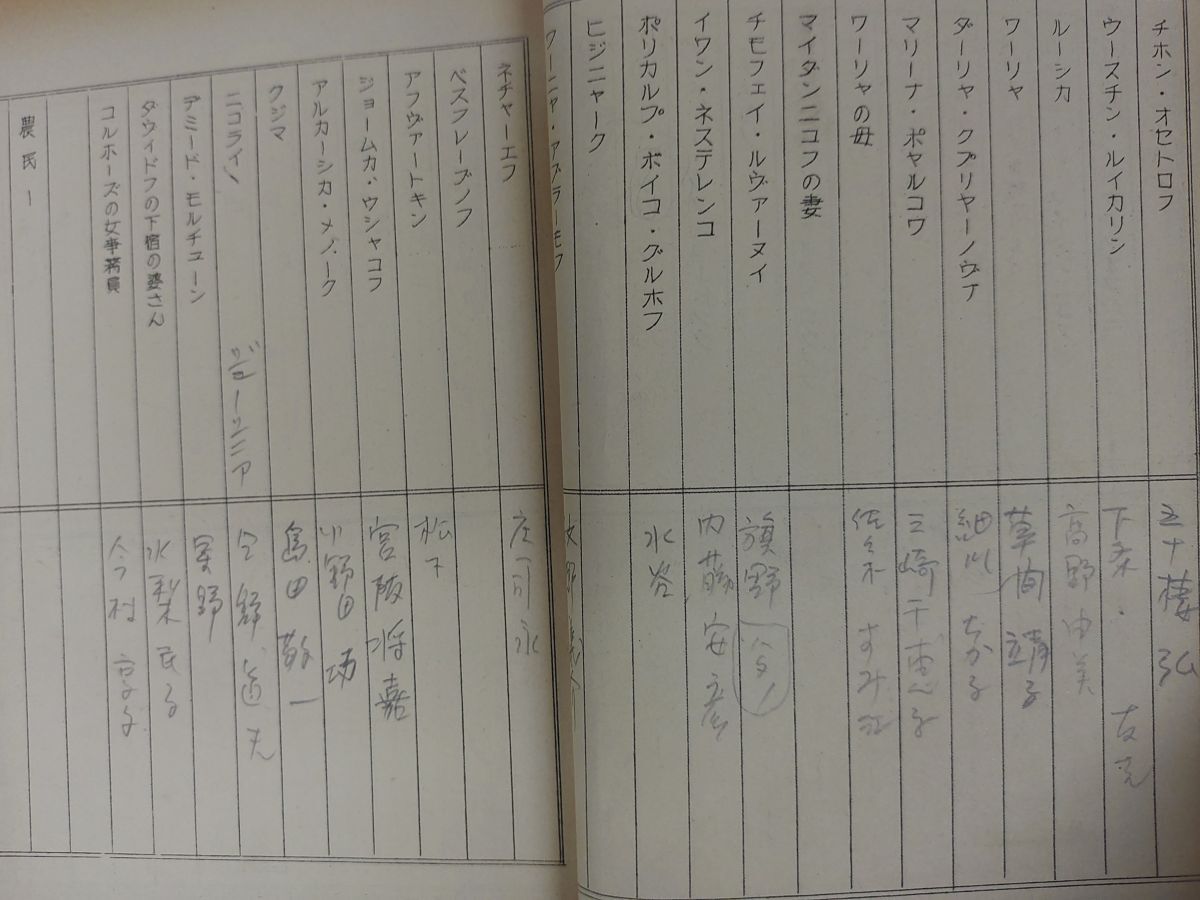 チホン・オセトロフ
五十棲 弘
ウースチン・ルイカリン
下条
ルーシカ
高野由美
ワーリャ
草間靖子
ダーリャ・クプリヤーノヴナ
細川ちか子
マリーナ・ポヤルコワ
三崎千恵子
ワーリャの母
佐々木すみ江
マイダンニコフの妻
チモフェイ・ルヴァーヌイ
旗野
イワン・ネステレンコ
内藤安彦
ポリカルプ・ボイコ・グルホフ
水谷
ヒジニャーク
ワーニャ・アブラーモフ
ネチャーエフ
庄司永
ベスフレーブノフ
アフヴァートキン
松下
ジョームカ・ウシャコフ
宮阪将嘉
アルカーシカ・メノーク
小野田功
クジマ
島田敬一
ニコライ
デミード・モルチューン
ダウィドフの下宿の婆さん
水梨民子
コルホーズの女事務員
今村
農民 1